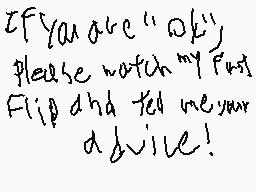 If you are "ok",
Please watch my first
Flip and tell me your
advice!